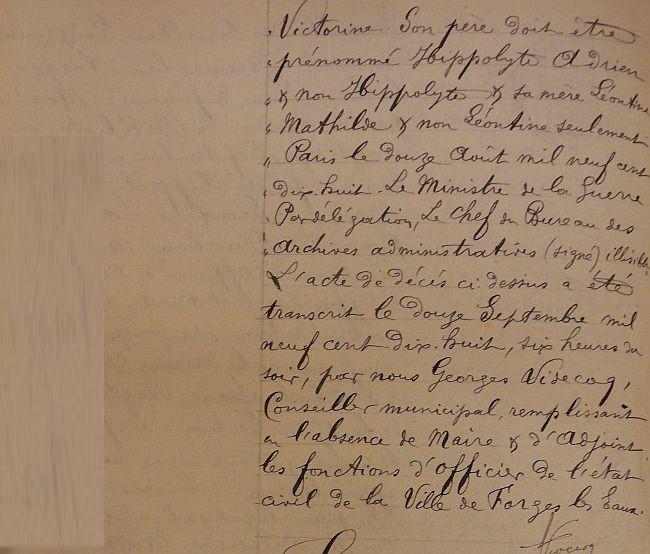 " Victorine. Son père doit être
" prénommé Hippolyte Adrien
" & non Hippolyte & sa mère Léontine
" Mathilde & non Léontine seulement
" Paris le douze Août mil neuf cent
" dix-huit. Le Ministre de la Guerre
" Par délégation, Le Chef du Bureau des
" Archives administratives (signé) illisible"
L'acte de décès ci-dessus a été
transcrit le douze Septembre mil
neuf cent dix-huit, six heures du
soir, par nous Georges Videcoq,
Conseiller municipal, remplissant
en l'absence de Maire & d'Adjoint
les fonctions d'officier de l'état
civil de la Ville de Forges les Eaux.